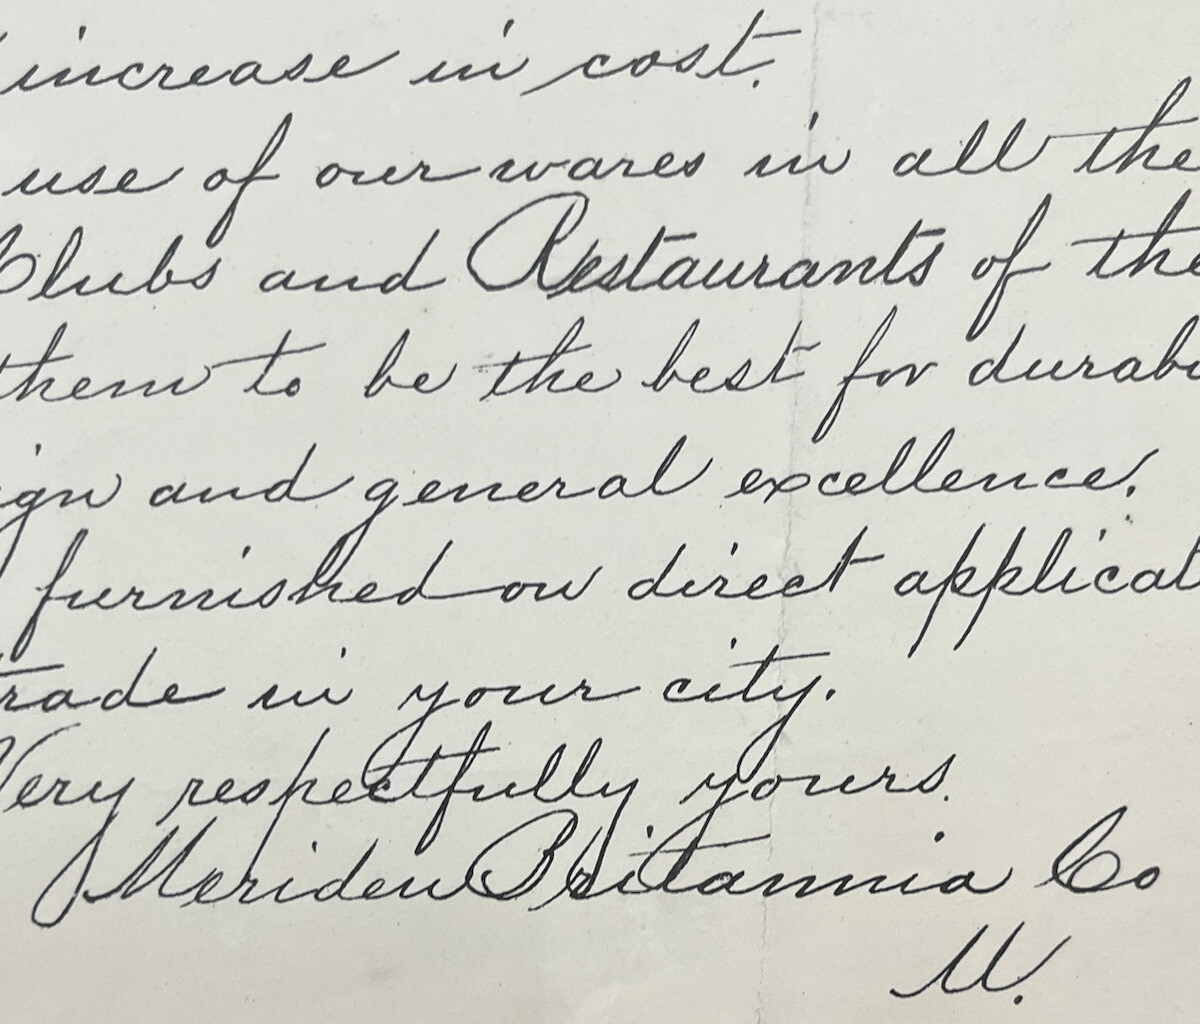 increase in cost.
use of our wares in all the
Clubs and Restaurants of the
them to be the best for durabi
ign and general excellence.
furnished on direct applicat
rade in your city.
Very respectfully yours.
Meriden Britannia Co
M.